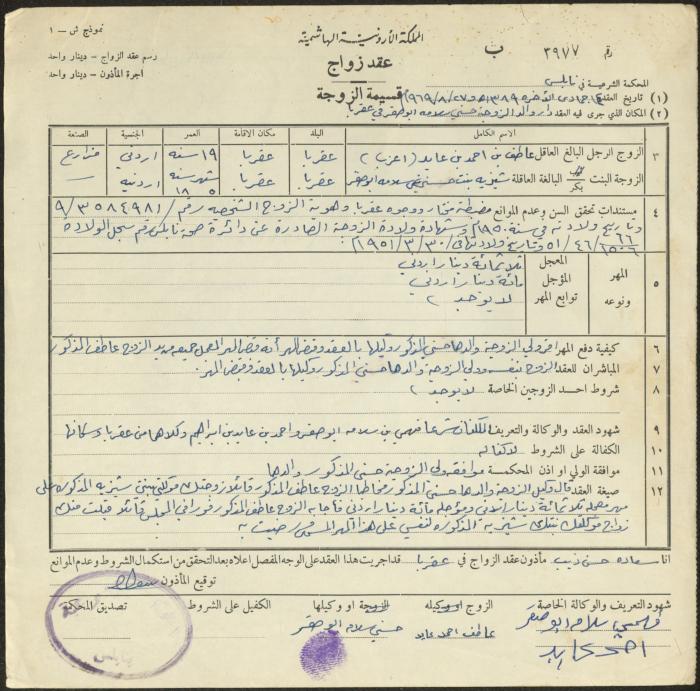 نموذج ش – ١
المملكة الأردنية الهاشمية
رقم ٣٩٧٧ ب
عقد زواج
رسم عقد الزواج – دينار واحد
اجرة المأذون – دينار واحد
قسيمة الزوجة
المحكمة الشرعية في نابلس
(١) تاريخ العقد جمادى الآخرة ١٣٨٩ ٢٧/٨/١٩٦٩
(٢) المكان الذي جرى فيه العقد دار والد الزوجة حسني سلامه ابوصقر في عقربا
الاسم الكامل البلد مكان الاقامة العمر الجنسية الصنعة
٣ الزوج الرجل البالغ العاقل عاطف بن احمد بن عايد (اعزب) عقربا عقربا ١٩ سنه اردني مزارع
الزوجة البنت بكر البالغة العاقلة شيزيه بنت حسني بن سلامه ابوصقر عقربا عقربا شهر سنه ٥ ١٨ اردنيه
٤ مستندات تحقق السن وعدم الموانع مضبطة مختار ووجوه عقربا وهوية الزوج الشخصيه رقم ٩/٣٥٨٤٩٨١
وتاريخ ولادته في سنة ١٩٥٠ وشهادة ولادة الزوجة الصادرة عن دائرة صحة نابلس رقم سجل الولاده
٥١/٤٦ وتاريخ ولادتها في ٣٠/٣/١٩٥١
٥ المهر ونوعه
المعجل ثلاثمائة دينار اردني
المؤجل مائة دينار اردني
توابع المهر لا يوجد
٦ كيفية دفع المهر اقر ولي الزوجة والدها حسني المذكور وكيلها بالعقد وقبض المهر أنه قبض المهر المعجل جميعه من يد الزوج عاطف المذكور
٧ المباشران للعقد الزوج بنفسه وولي الزوجة والدها حسني المذكور وكيلها بالعقد وقبض المهر
٨ شروط احد الزوجين الخاصة لا يوجد
٩ شهود العقد والوكالة والتعريف المكلفان شرعا فهمي بن سلامه ابوصقر واحمد بن عايد بن ابراهيم وكلاهما من عقربا وسكانها
١٠ الكفالة على الشروط لا كفاله
١١ موافقة الولي او اذن المحكمة موافقة ولي الزوجة حسني المذكور والدها
١٢ صيغة العقد قال وكيل الزوجة والدها حسني المذكور مخاطبا الزوج عاطف المذكور قائلا زوجتك موكلتي بنتي شيزيه المذكوره على
مهر معجله ثلاثمائة دينار اردني ومؤجله مائة دينار اردني فأجابه الزوج عاطف المذكور فورا في المجلس قائلا قبلت منك
زواج موكلتك بنتك شيزيه المذكوره لنفسي على هذا المهر المسمى ورضيت به
انا سعاده حسني ذيب مأذون عقد الزواج في عقربا قد اجريت هذا العقد على الوجه المفصل اعلاه بعد التحقق من استكمال الشروط وعدم الموانع
توقيع المأذون
شهود التعريف والوكالة الخاصة
الزوج او وكيله
الزوجة او وكيلها
الكفيل على الشروط
تصديق المحكمة
فهمي سلامه ابوصقر
احمد عايد
عاطف احمد عايد
حسني سلامه ابوصقر
نابلس